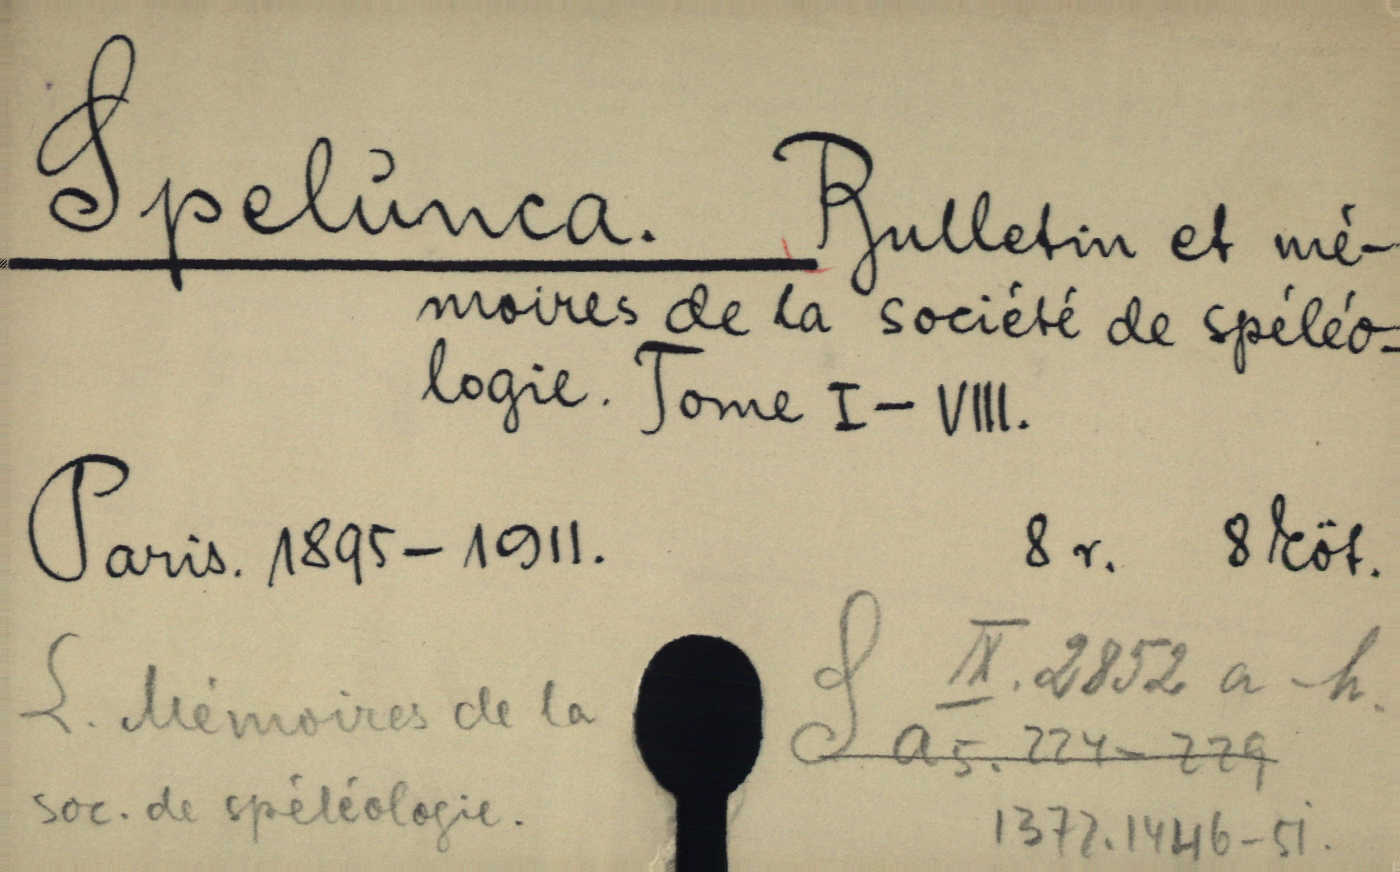 Spelunca. Bulletin et mé-
moires de la société de spéléo-
logie. Tome I – VIII.
Paris. 1895 – 1911. 8 r. 8 köt.
L. Mémoires de la
soc. de spéléologie.
IX. 2852 a - h.
S a 5. 224 – 229
1372. 1446 – 51.